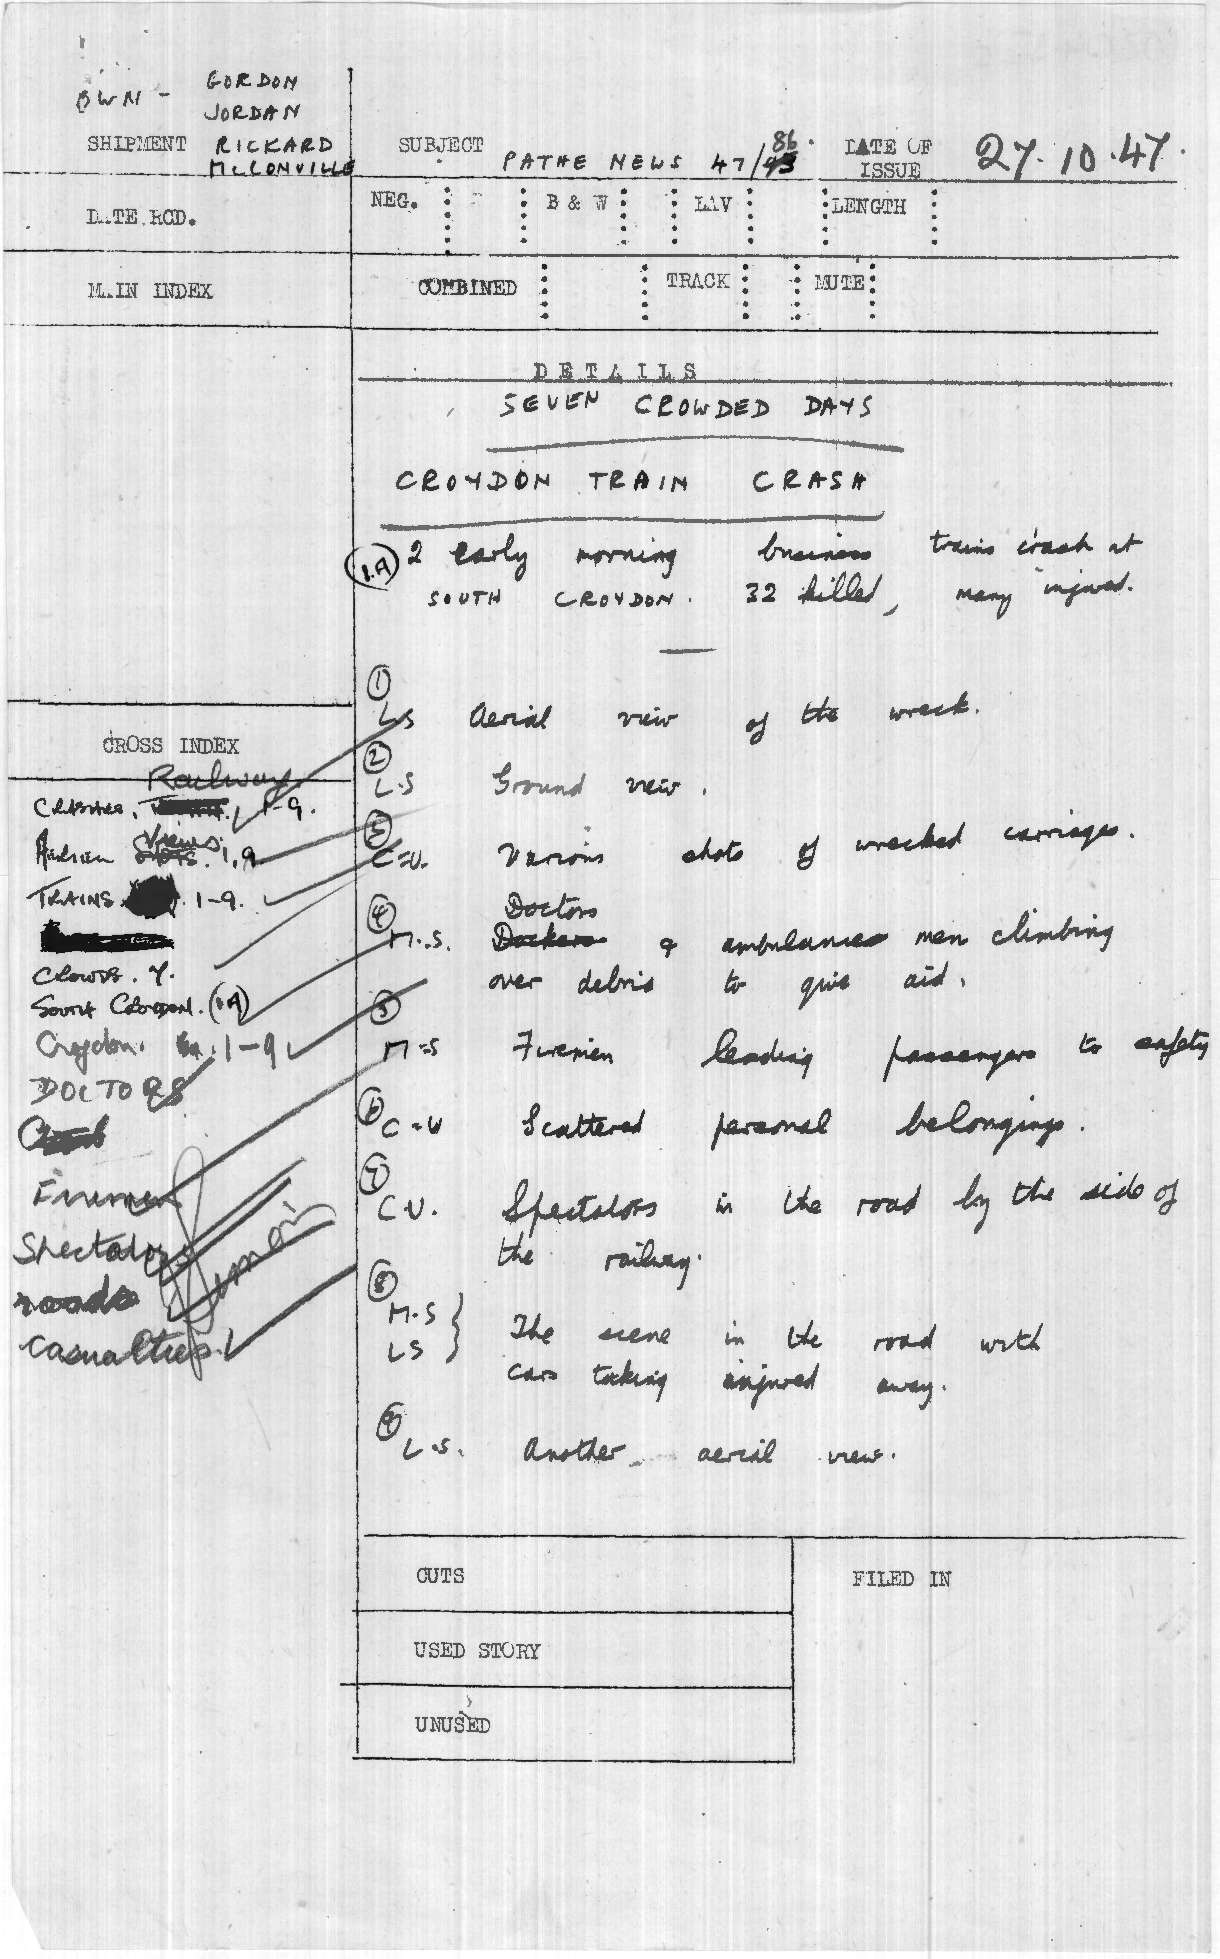 OWN - GORDON
JORDAN
SHIPMENT RICKARD
McCONVILLE
SUBJECT PATHE NEWS 47/86
DATE OF ISSUE 27.10.47.
DATE RCD.
NEG. B & W LAV LENGTH
MAIN INDEX
COMBINED TRACK MUTE
DETAILS
SEVEN CROWDED DAYS
CROYDON TRAIN CRASH
1.A 2 early morning business trains crash at
SOUTH CROYDON. 32 killed, many injured.
1
LS Aerial view of the wreck.
2
L.S Ground view.
3
C.U. Various shots of wrecked carriages.
4
Doctors
M.S. Dockers & ambulance men climbing
over debris to give aid.
5
M.S Firemen leading passengers to safety
6
C.U Scattered personal belongings.
7
C.U. Spectators in the road by the side of
the railway.
8
M.S
LS } The scene in the road with
cars taking injured away.
9
L.S. Another aerial view.
CROSS INDEX
Railway
CRASHES, 1-9.
Views
AERIAL 1,9
TRAINS. 1-9.
CROWDS. 7.
SOUTH CROYDON. (1A)
Croydon. 1-9
DOCTORS
Firemen
Spectators
roads
Casualties
CUTS
FILED IN
USED STORY
UNUSED